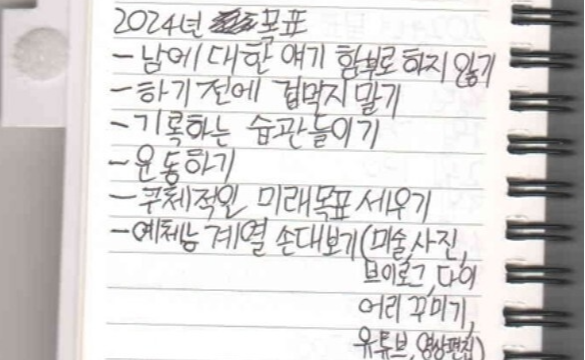 2024년 포표
-남에 대한 얘기 함부로 하지 않기
-하기 전에 겁먹지 말기
-기록하는 습관들이기
-운동하기
-구체적일 미래목표 세우기
-예체능 계열 손대보기(미술,사진,
브이로그,다이
어리 꾸미기,
유튜브,영상편집)